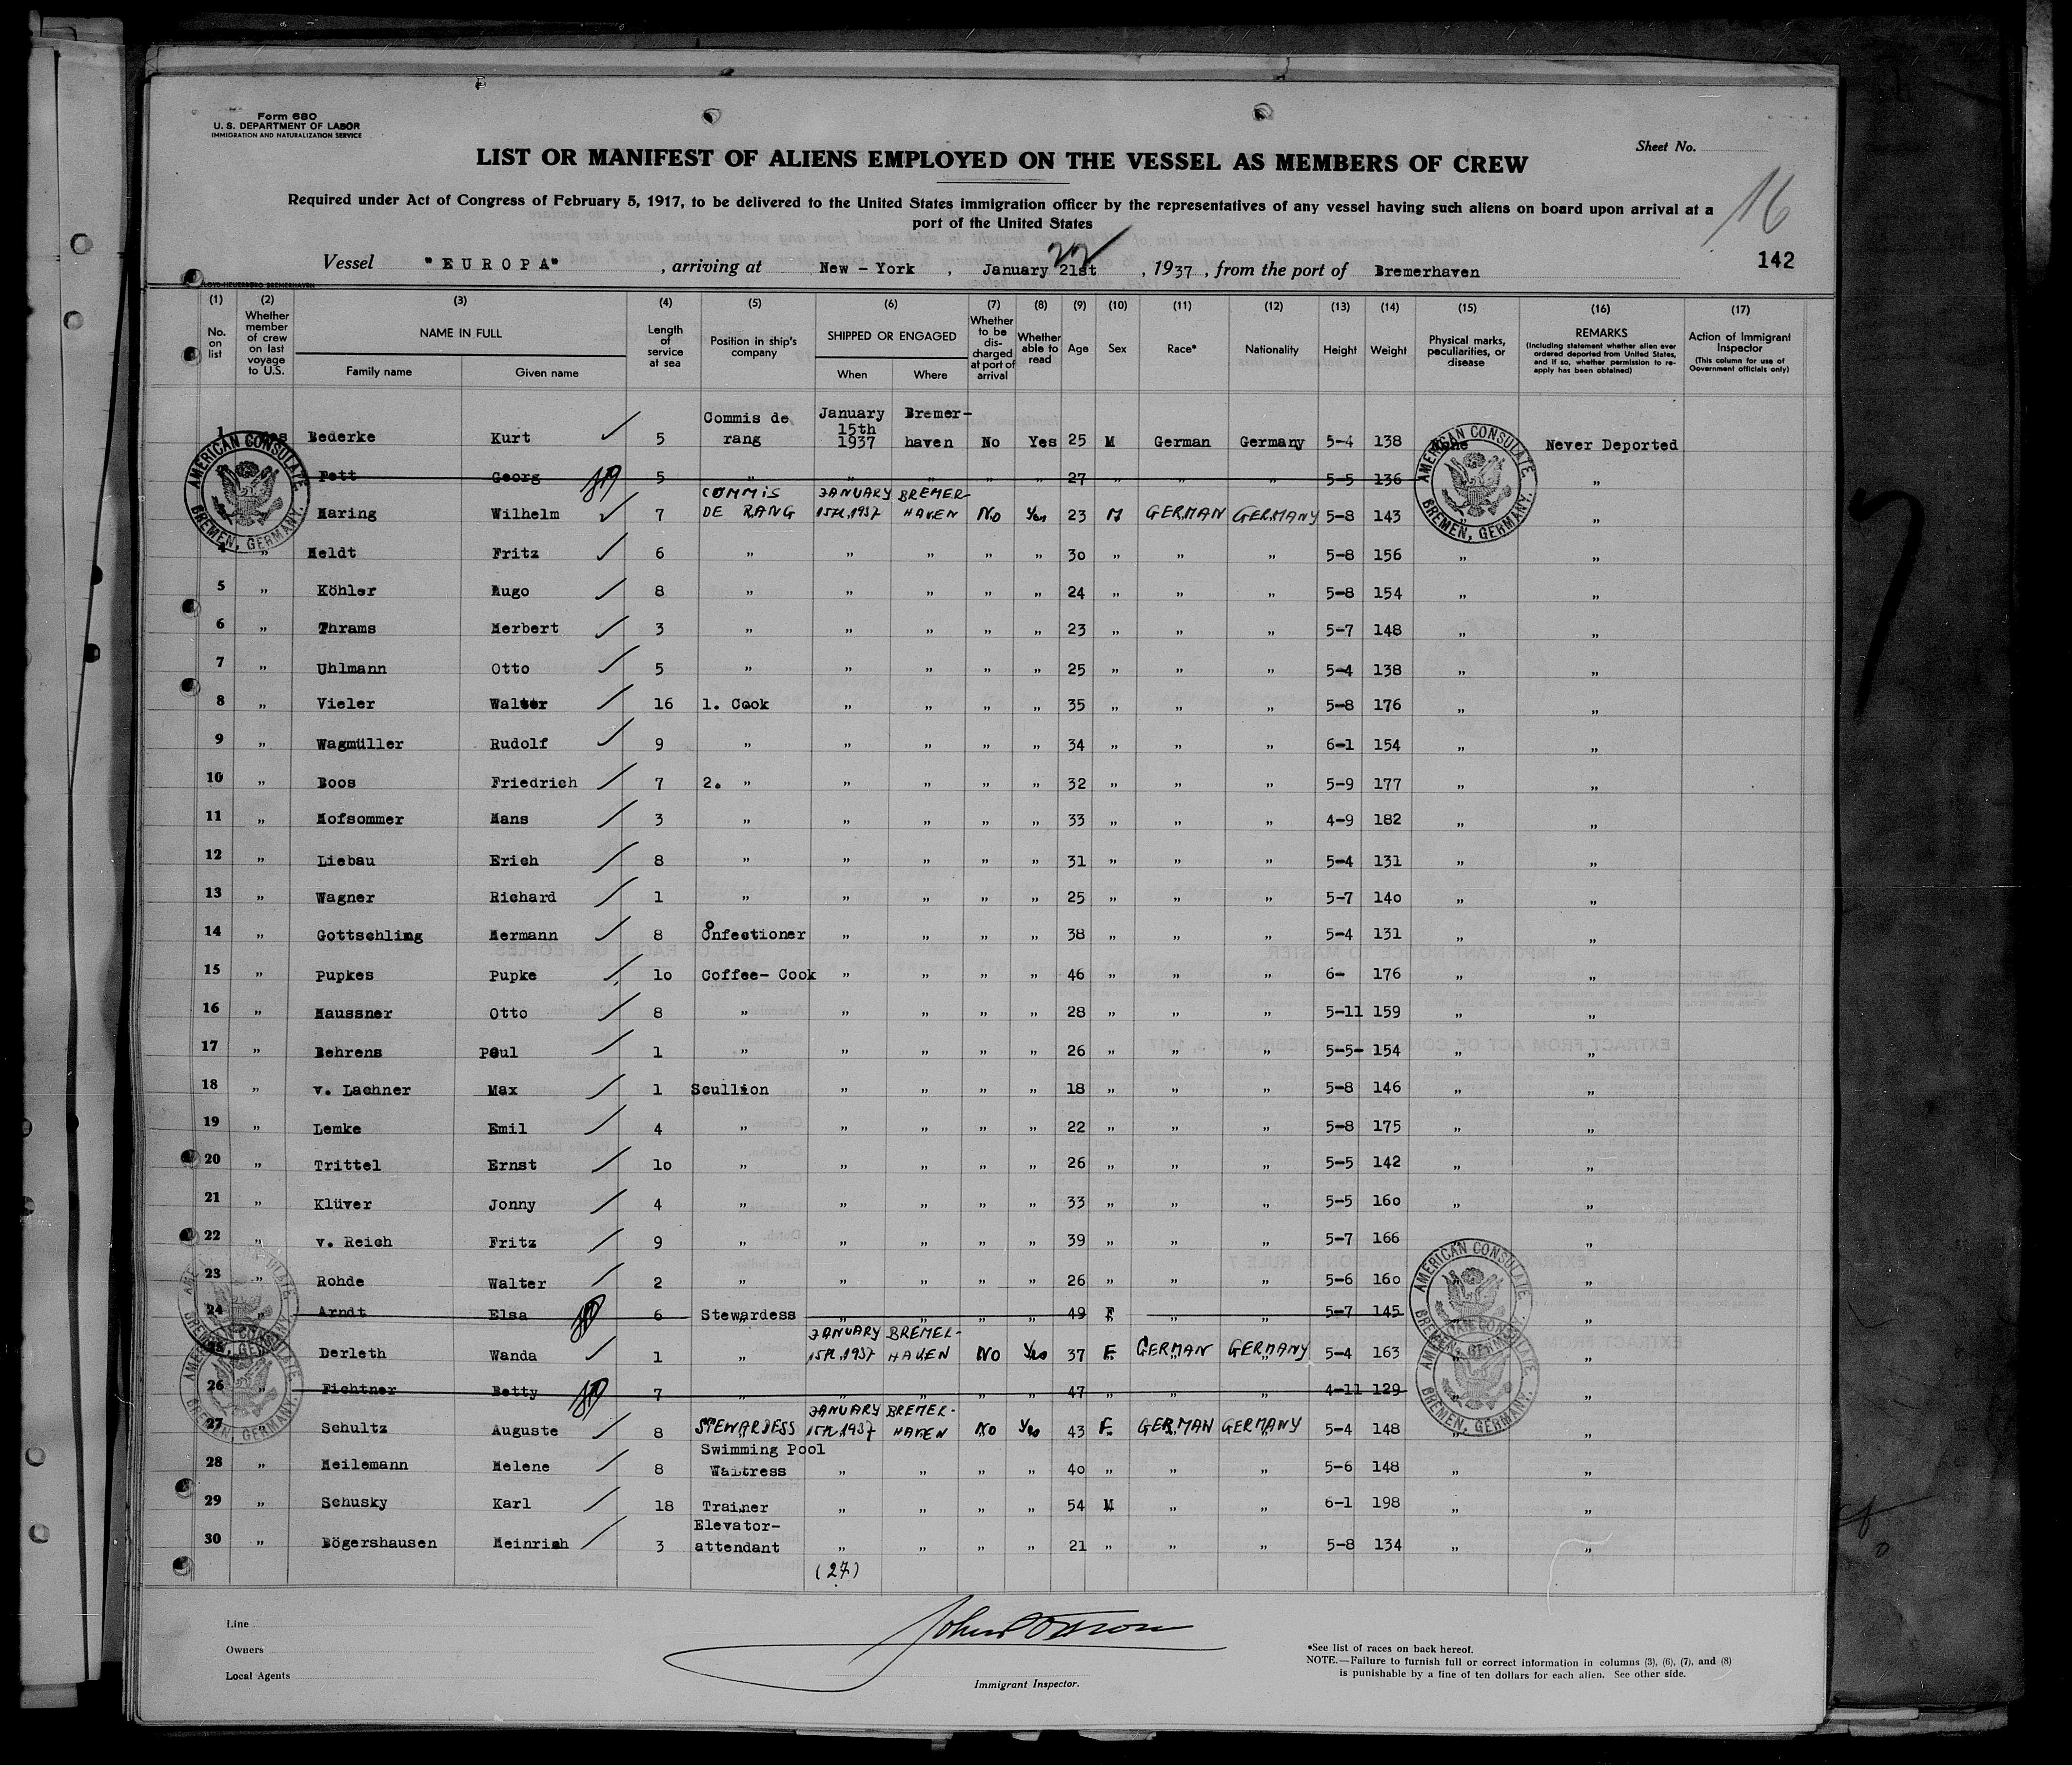 Form 680
U. S. DEPARTMENT OF LABOR
IMMIGRATION AND NATURALIZATION SERVICE
Sheet No.
LIST OR MANIFEST OF ALIENS EMPLOYED ON THE VESSEL AS MEMBERS OF CREW
16
Required under Act of Congress of February 5, 1917, to be delivered to the United States immigration officer by the representatives of any vessel having such aliens on board upon arrival at a
port of the United States
22
Vessel "EUROPA", arriving at New-York, January 21st, 1937, from the port of Bremerhaven
142
(1) (2) (3) (4) (5) (6) (7) (8) (9) (10) (11) (12) (13) (14) (15) (16) (17)
No. on list
Whether member of crew on last voyage to U.S.
NAME IN FULL
Family name Given name
Length of service at sea
Position in ship's company
SHIPPED OR ENGAGED
When Where
Whether to be discharged at port of arrival
Whether able to read
Age Sex Race* Nationality Height Weight
Physical marks, peculiarities, or disease
REMARKS
(Including statement whether alien ever ordered deported from United States, and if so, whether permission to re-apply has been obtained)
Action of Immigrant Inspector
(This column for use of Government officials only)
1 Yes Bederke Kurt 5 Commis de rang January 15th 1937 Bremer-haven No Yes 25 M German Germany 5-4 138 None Never Deported
Fett Georg 5 " " " " " 27 " " " 5-5 136 "
Haring Wilhelm 7 COMMIS DE RANG JANUARY 15th,1937 BREMER-HAVEN No Yes 23 M GERMAN GERMANY 5-8 143 " "
4 " Heldt Fritz 6 " " " " " 30 " " " 5-8 156 " "
5 " Köhler Hugo 8 " " " " " 24 " " " 5-8 154 " "
6 " Thrams Herbert 3 " " " " " 23 " " " 5-7 148 " "
7 " Uhlmann Otto 5 " " " " " 25 " " " 5-4 138 " "
8 " Vieler Walter 16 1. Cook " " " " 35 " " " 5-8 176 " "
9 " Wagmüller Rudolf 9 " " " " " 34 " " " 6-1 154 " "
10 " Boos Friedrich 7 2. " " " " " 32 " " " 5-9 177 " "
11 " Hofsommer Hans 3 " " " " " 33 " " " 4-9 182 " "
12 " Liebau Erich 8 " " " " " 31 " " " 5-4 131 " "
13 " Wagner Richard 1 " " " " " 25 " " " 5-7 140 " "
14 " Gottschling Hermann 8 Confectioner " " " " 38 " " " 5-4 131 " "
15 " Pupkes Pupke 10 Coffee- Cook " " " " 46 " " " 6- 176 " "
16 " Haussner Otto 8 " " " " " 28 " " " 5-11 159 " "
17 " Behrens Paul 1 " " " " " 26 " " " 5-5- 154 " "
18 " v. Lachner Max 1 Scullion " " " " 18 " " " 5-8 146 " "
19 " Lemke Emil 4 " " " " " 22 " " " 5-8 175 " "
20 " Trittel Ernst 10 " " " " " 26 " " " 5-5 142 " "
21 " Klüver Jonny 4 " " " " " 33 " " " 5-5 160 " "
22 " v. Reich Fritz 9 " " " " " 39 " " " 5-7 166 "
23 " Rohde Walter 2 " " " " " 26 " " " 5-6 160 "
24 " Arndt Elsa 6 Stewardess " " " " 49 F " " 5-7 145 "
25 Derleth Wanda 1 " JANUARY 15th,1937 BREMER-HAVEN No Yes 37 F. GERMAN GERMANY 5-4 163 "
26 " Fichtner Betty 7 " " " " " 47 " " " 4-11 129 "
27 " Schultz Auguste 8 STEWARDESS JANUARY 15th,1937 BREMER-HAVEN No Yes 43 F. GERMAN GERMANY 5-4 148 " "
28 " Heilemann Helene 8 Swimming Pool Waitress " " " " 40 " " " 5-6 148 " "
29 " Schusky Karl 18 Trainer " " " " 54 M " " 6-1 198 " "
30 " Bögershausen Heinrich 3 Elevator-attendant " " " " 21 " " " 5-8 134 " "
(27)
AMERICAN CONSULATE BREMEN, GERMANY.
AMERICAN CONSULATE BREMEN, GERMANY.
AMERICAN CONSULATE BREMEN, GERMANY.
AMERICAN CONSULATE BREMEN, GERMANY.
Line
Owners
Local Agents
Immigrant Inspector.
*See list of races on back hereof.
NOTE.—Failure to furnish full or correct information in columns (3), (6), (7), and (8)
is punishable by a fine of ten dollars for each alien. See other side.